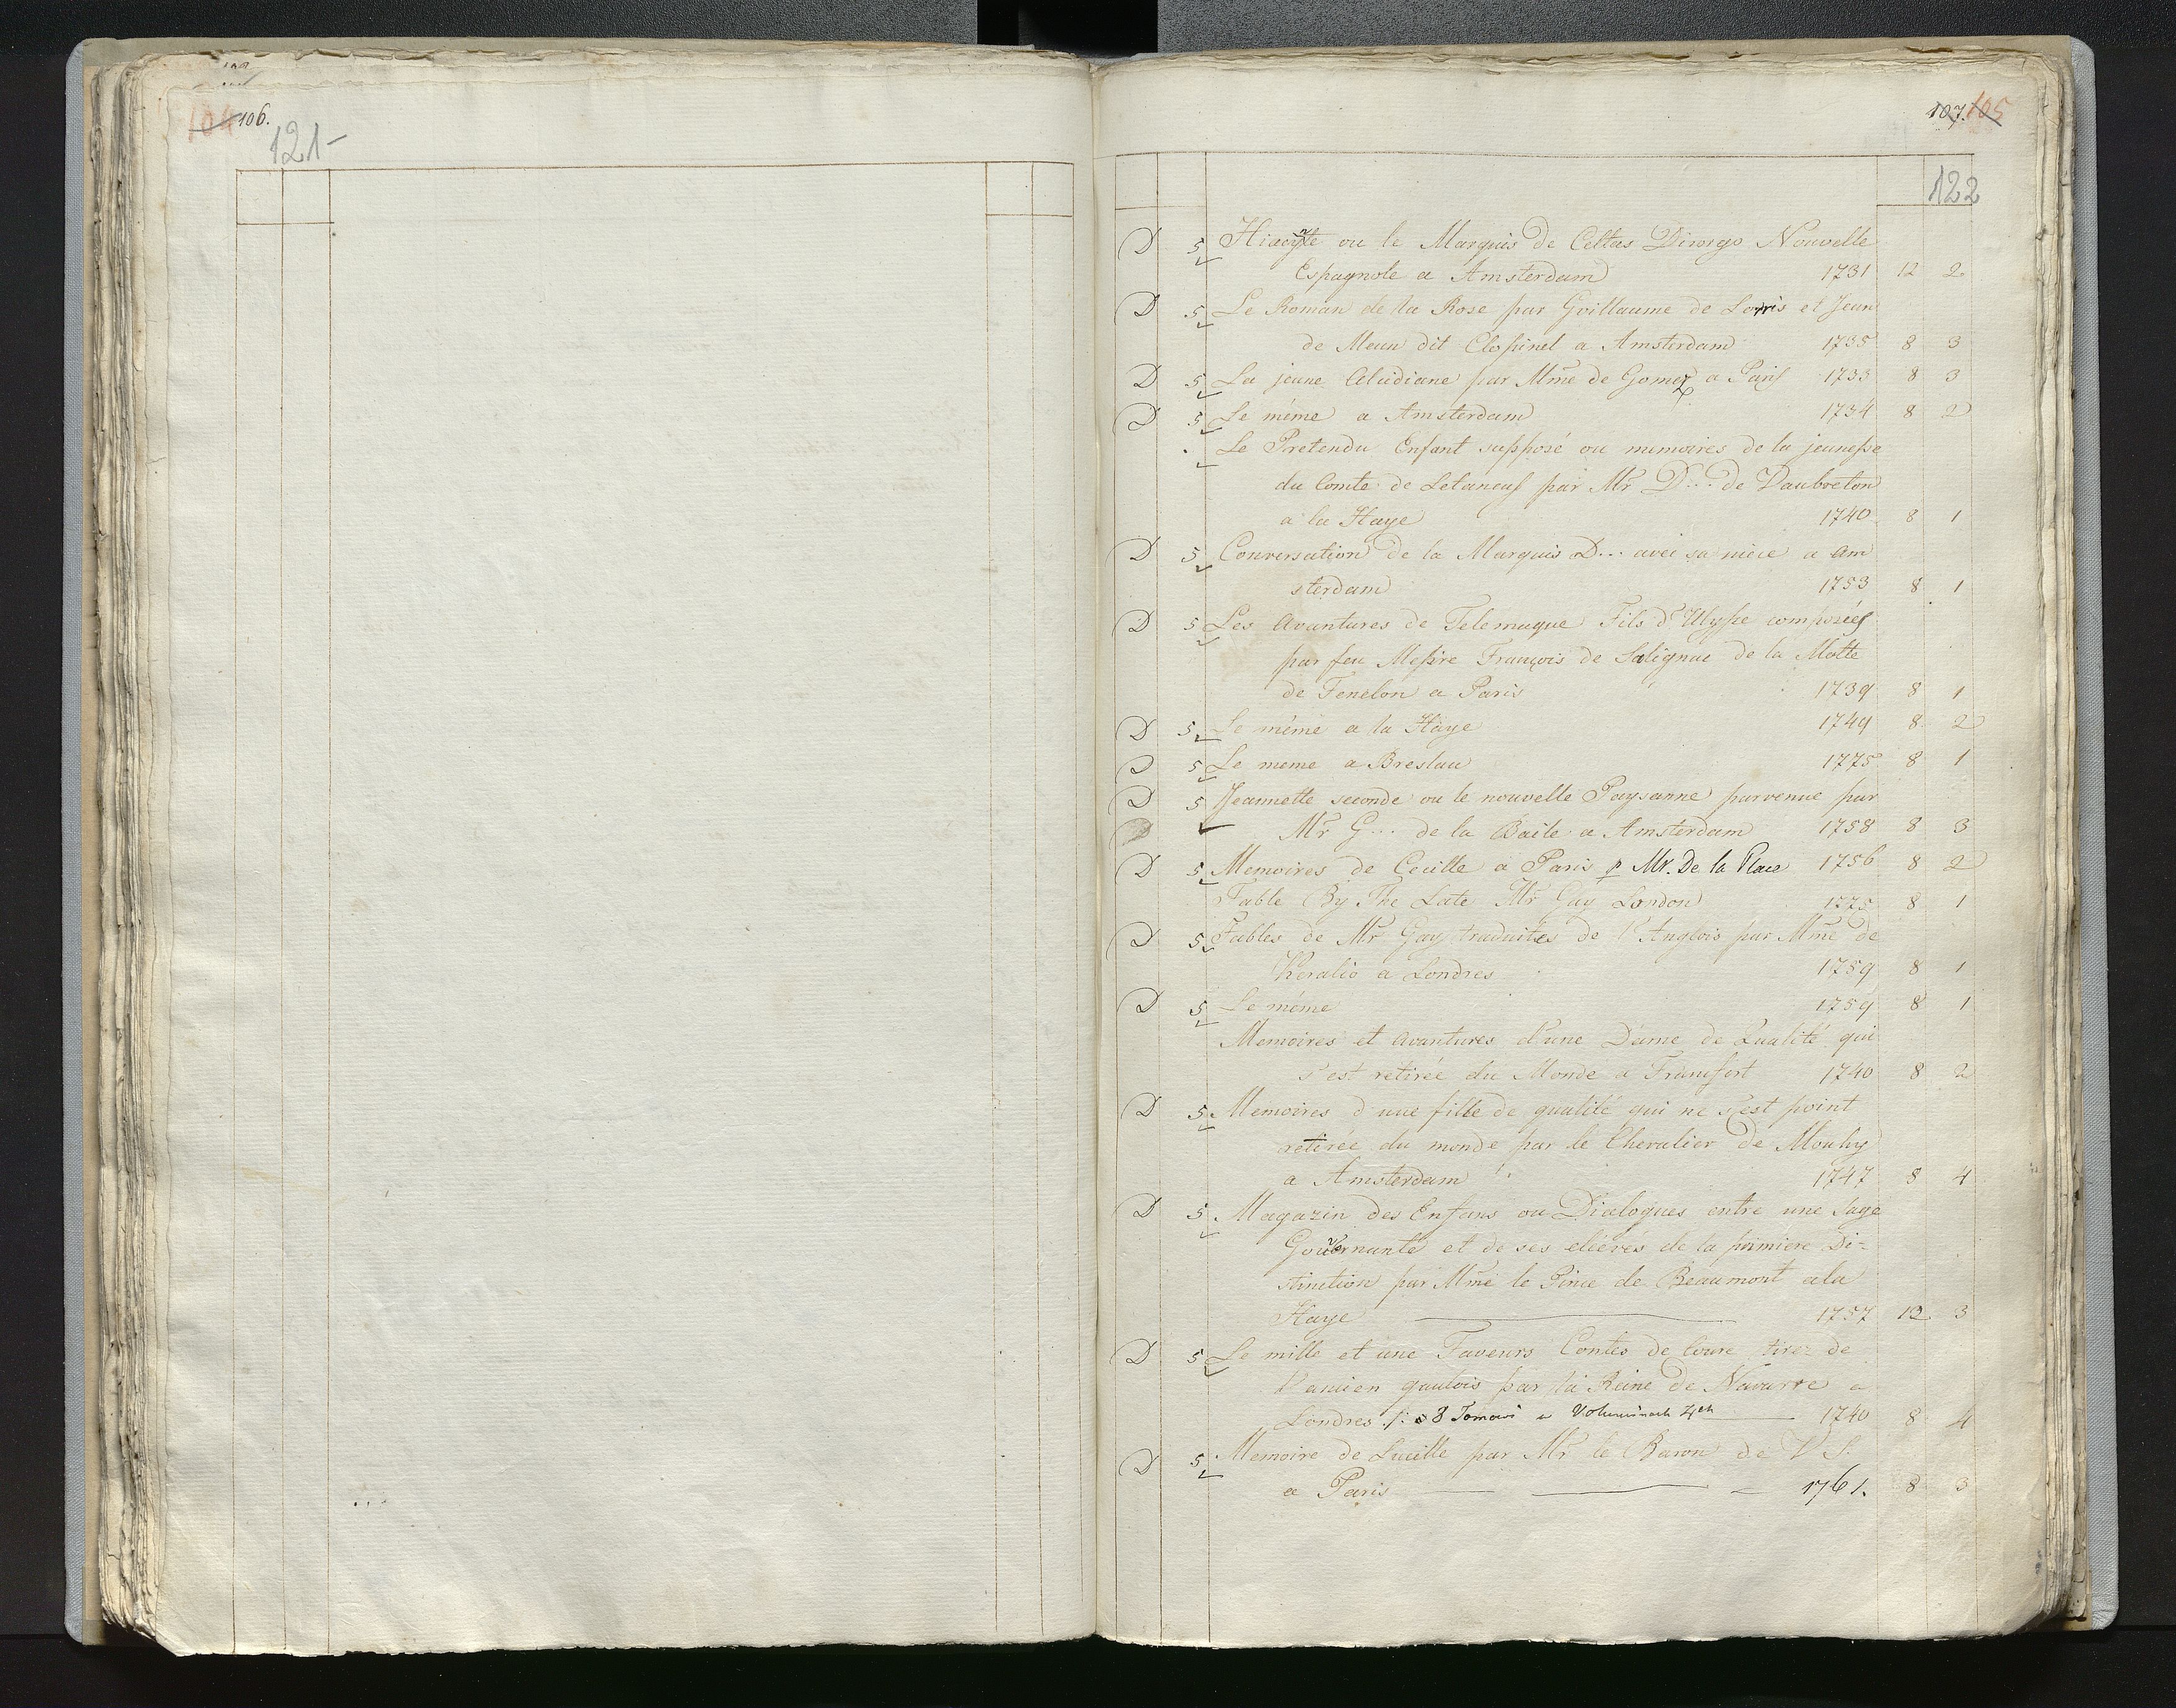 104 106.
121-
107. 105
122
D 5 Hiacynte ou le Marquis de Celtas Dirorgo Nouvelle
Espagnole a Amsterdam 1731 12 2
D 5 Le Roman de la Rose par Guillaume de Lorris et Jean
de Meun dit Clopinel a Amsterdam 1735 8 3
D 5 La jeune Alcidiane par Mme de Gomez a Paris 1733 8 3
D 5 Le même a Amsterdam 1734 8 2
Le Pretendu Enfant supposé ou memoires de la jeunesse
du Comte de Letaneuf par Mr D... de Vaubreton
a la Haye 1740 8 1
D 5 Conversation de la Marquis D... avec sa niéce a Am
sterdam 1753 8 1
D 5 Les Avantures de Telemaque Fils d'Ulysse composées
par feu Messire François de Salignac de la Motte
de Fenelon a Paris 1739 8 1
D 5 Le même a la Haye 1749 8 2
D 5 Le meme a Breslau 1775 8 1
D 5 Jeannette seconde ou le nouvelle Paysanne parvenue par
Mr G... de la Baile a Amsterdam 1758 8 3
D 5 Memoires de Cecille a Paris p Mr. De la Place 1756 8 2
Fable By The Late Mr Gay London 1775 8 1
D 5 Fables de Mr Gay traduites de l'Anglois par Mme de
Keralio a Londres 1759 8 1
D 5 Le même 1759 8 1
Memoires et Avantures d'une Dame de Qualité qui
s'est retirée du Monde a Francfort 1740 8 2
D 5 Memoires d'une fille de qualité qui ne s'est point
retirée du monde par le Chevalier de Mouhy
a Amsterdam 1747 8 4
D 5 Magazin des Enfans ou Dialogues entre une sage
Gouvernante et de ses elieves de la primiere Di=
stinction par Mme le Prince de Beaumont a la
Haye 1757 12 3
D 5 Le mille et une Faveurs Contes de Cour tirez de
l'ancien gaulois par la Reine de Navarre a
Londres /: 8 Tomow w Voluminach 4ch 1740 8 4
D 5 Memoire de Lucille par Mr le Baron de V S.
a Paris 1761. 8 3